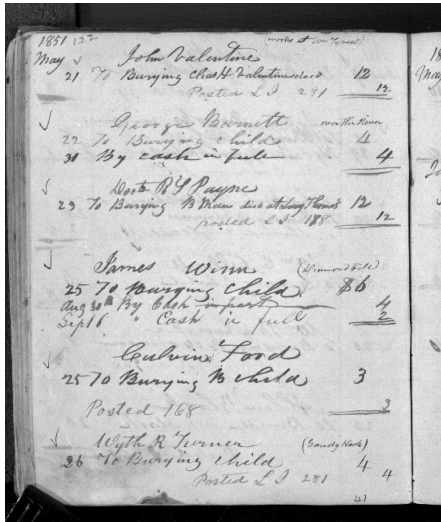 1851 122
John Valentine
May
21 To Burying Chas H Valentine 12
Posted L I 281 12
George Burnett over the River
22 To Burying child 4
31 By cash in full 4
Doct R S Payne
23 To Burying B Man died at Thomas 12
posted L I 188 12
James Winn (Diamond Hill)
25 To Burying child $6
Aug 30th By Cash in part 4
Sept 6 " Cash in full 2
Calvin Ford
25 To Burying B child 3
Posted 168 3
Wyth R Turner (Sandy Hook)
26 To Burying child 4
Posted L I 281 4
41
18
May